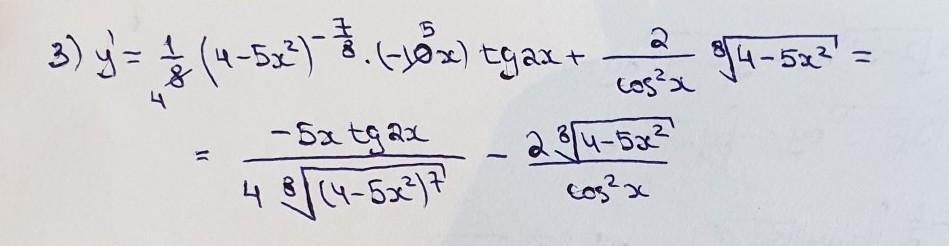 3) y' = 1/8̶ 4 (4-5x²)^(-7/8) · (-1̶0̶ 5 x) tg2x + 2/cos²x ⁸√(4-5x²) =
= -5x tg2x / 4 ⁸√((4-5x²)⁷) - 2 ⁸√(4-5x²) / cos²x